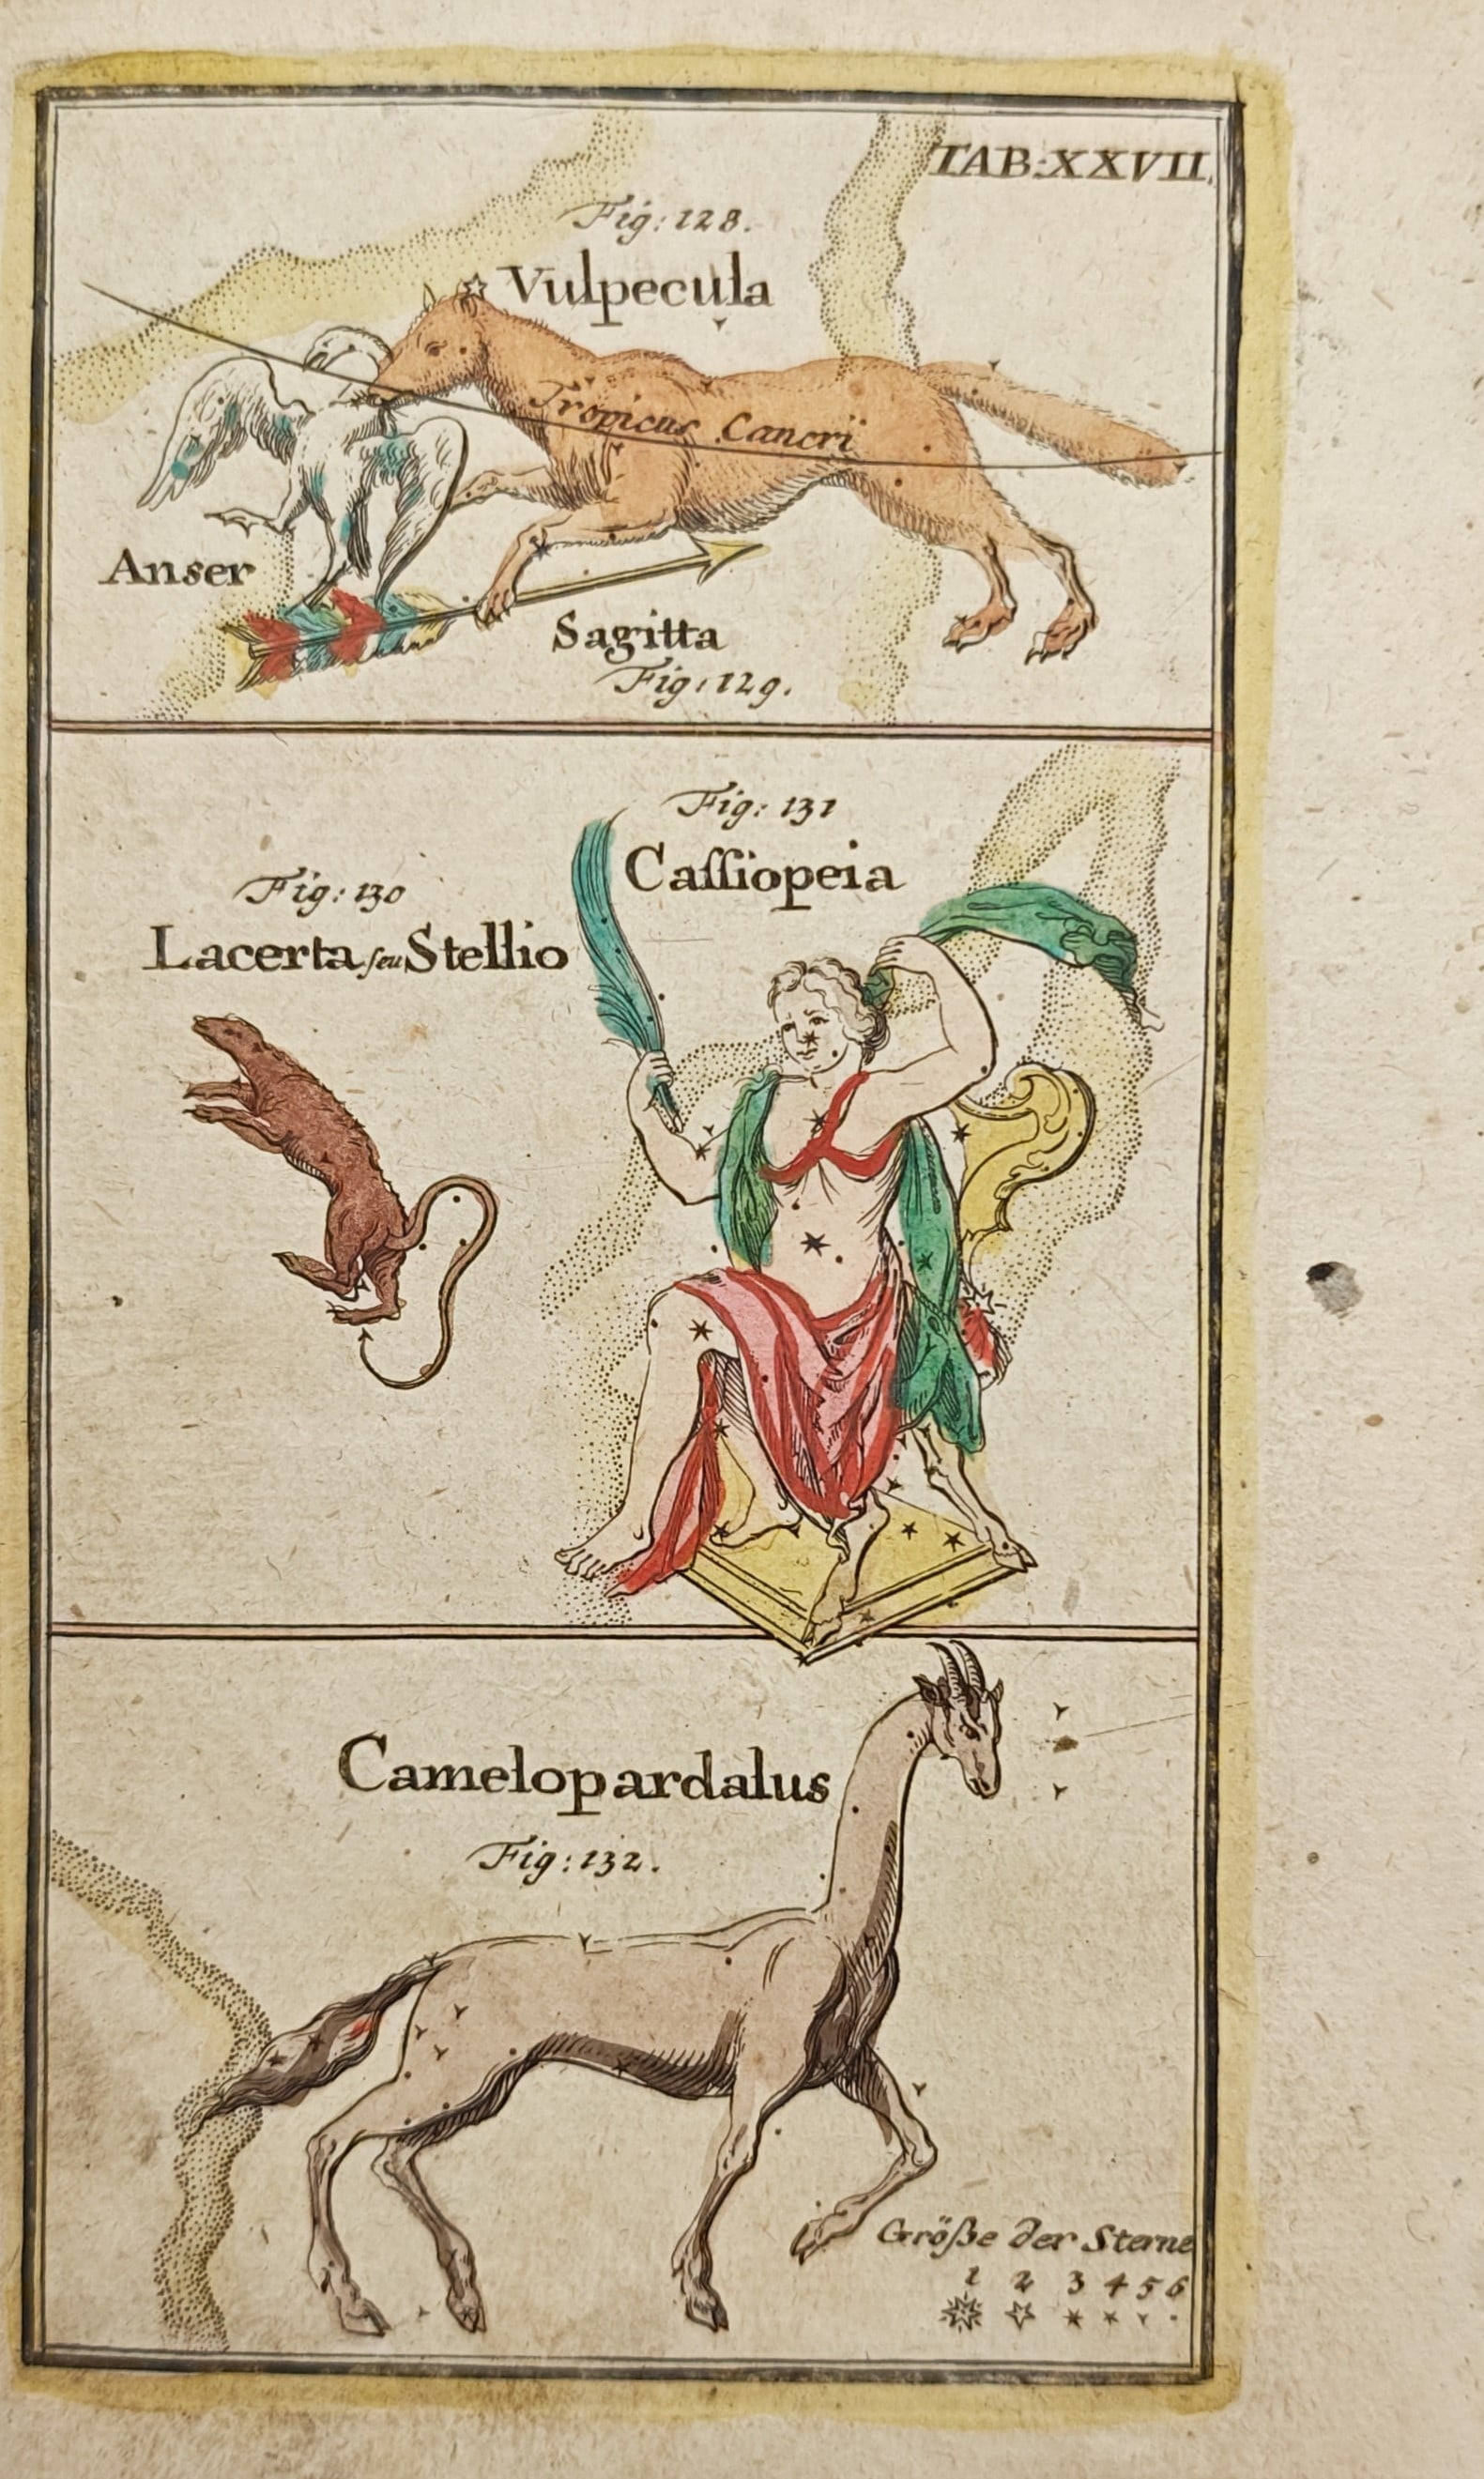 TAB:XXVII.
Fig: 128.
Vulpecula
Tropicus Cancri
Anser
Sagitta
Fig: 129.
Fig: 131
Caſſiopeia
Fig: 130
Lacerta ſeu Stellio
Camelopardalus
Fig: 132.
Größe der Sterne
1 2 3 4 5 6